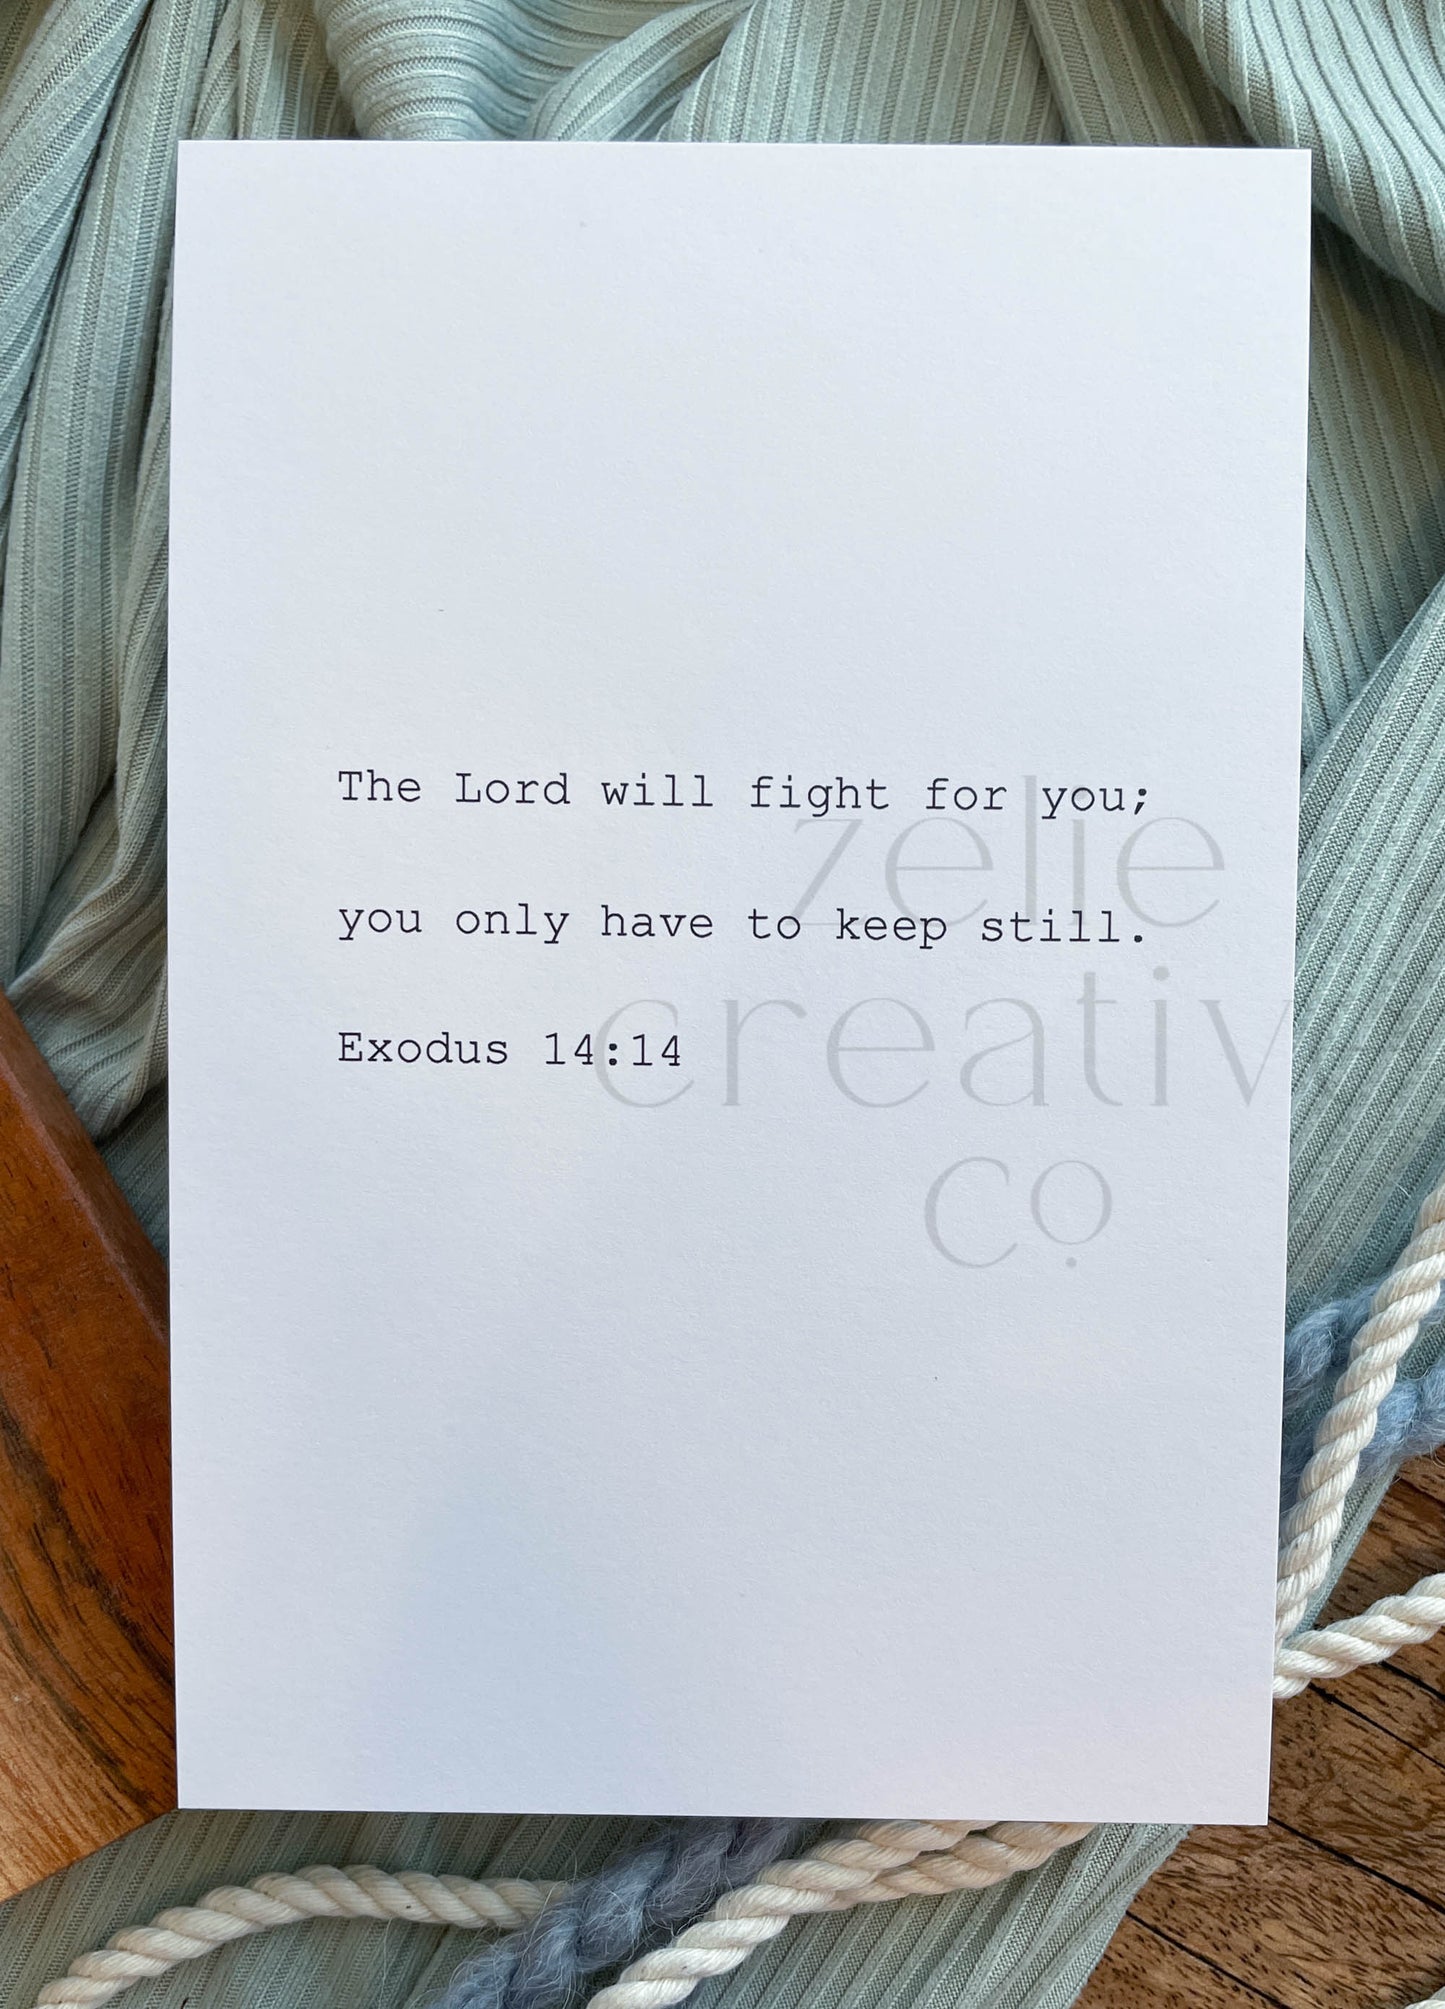 The Lord will fight for you;
you only have to keep still.
Exodus 14:14
zelie
creativ
co